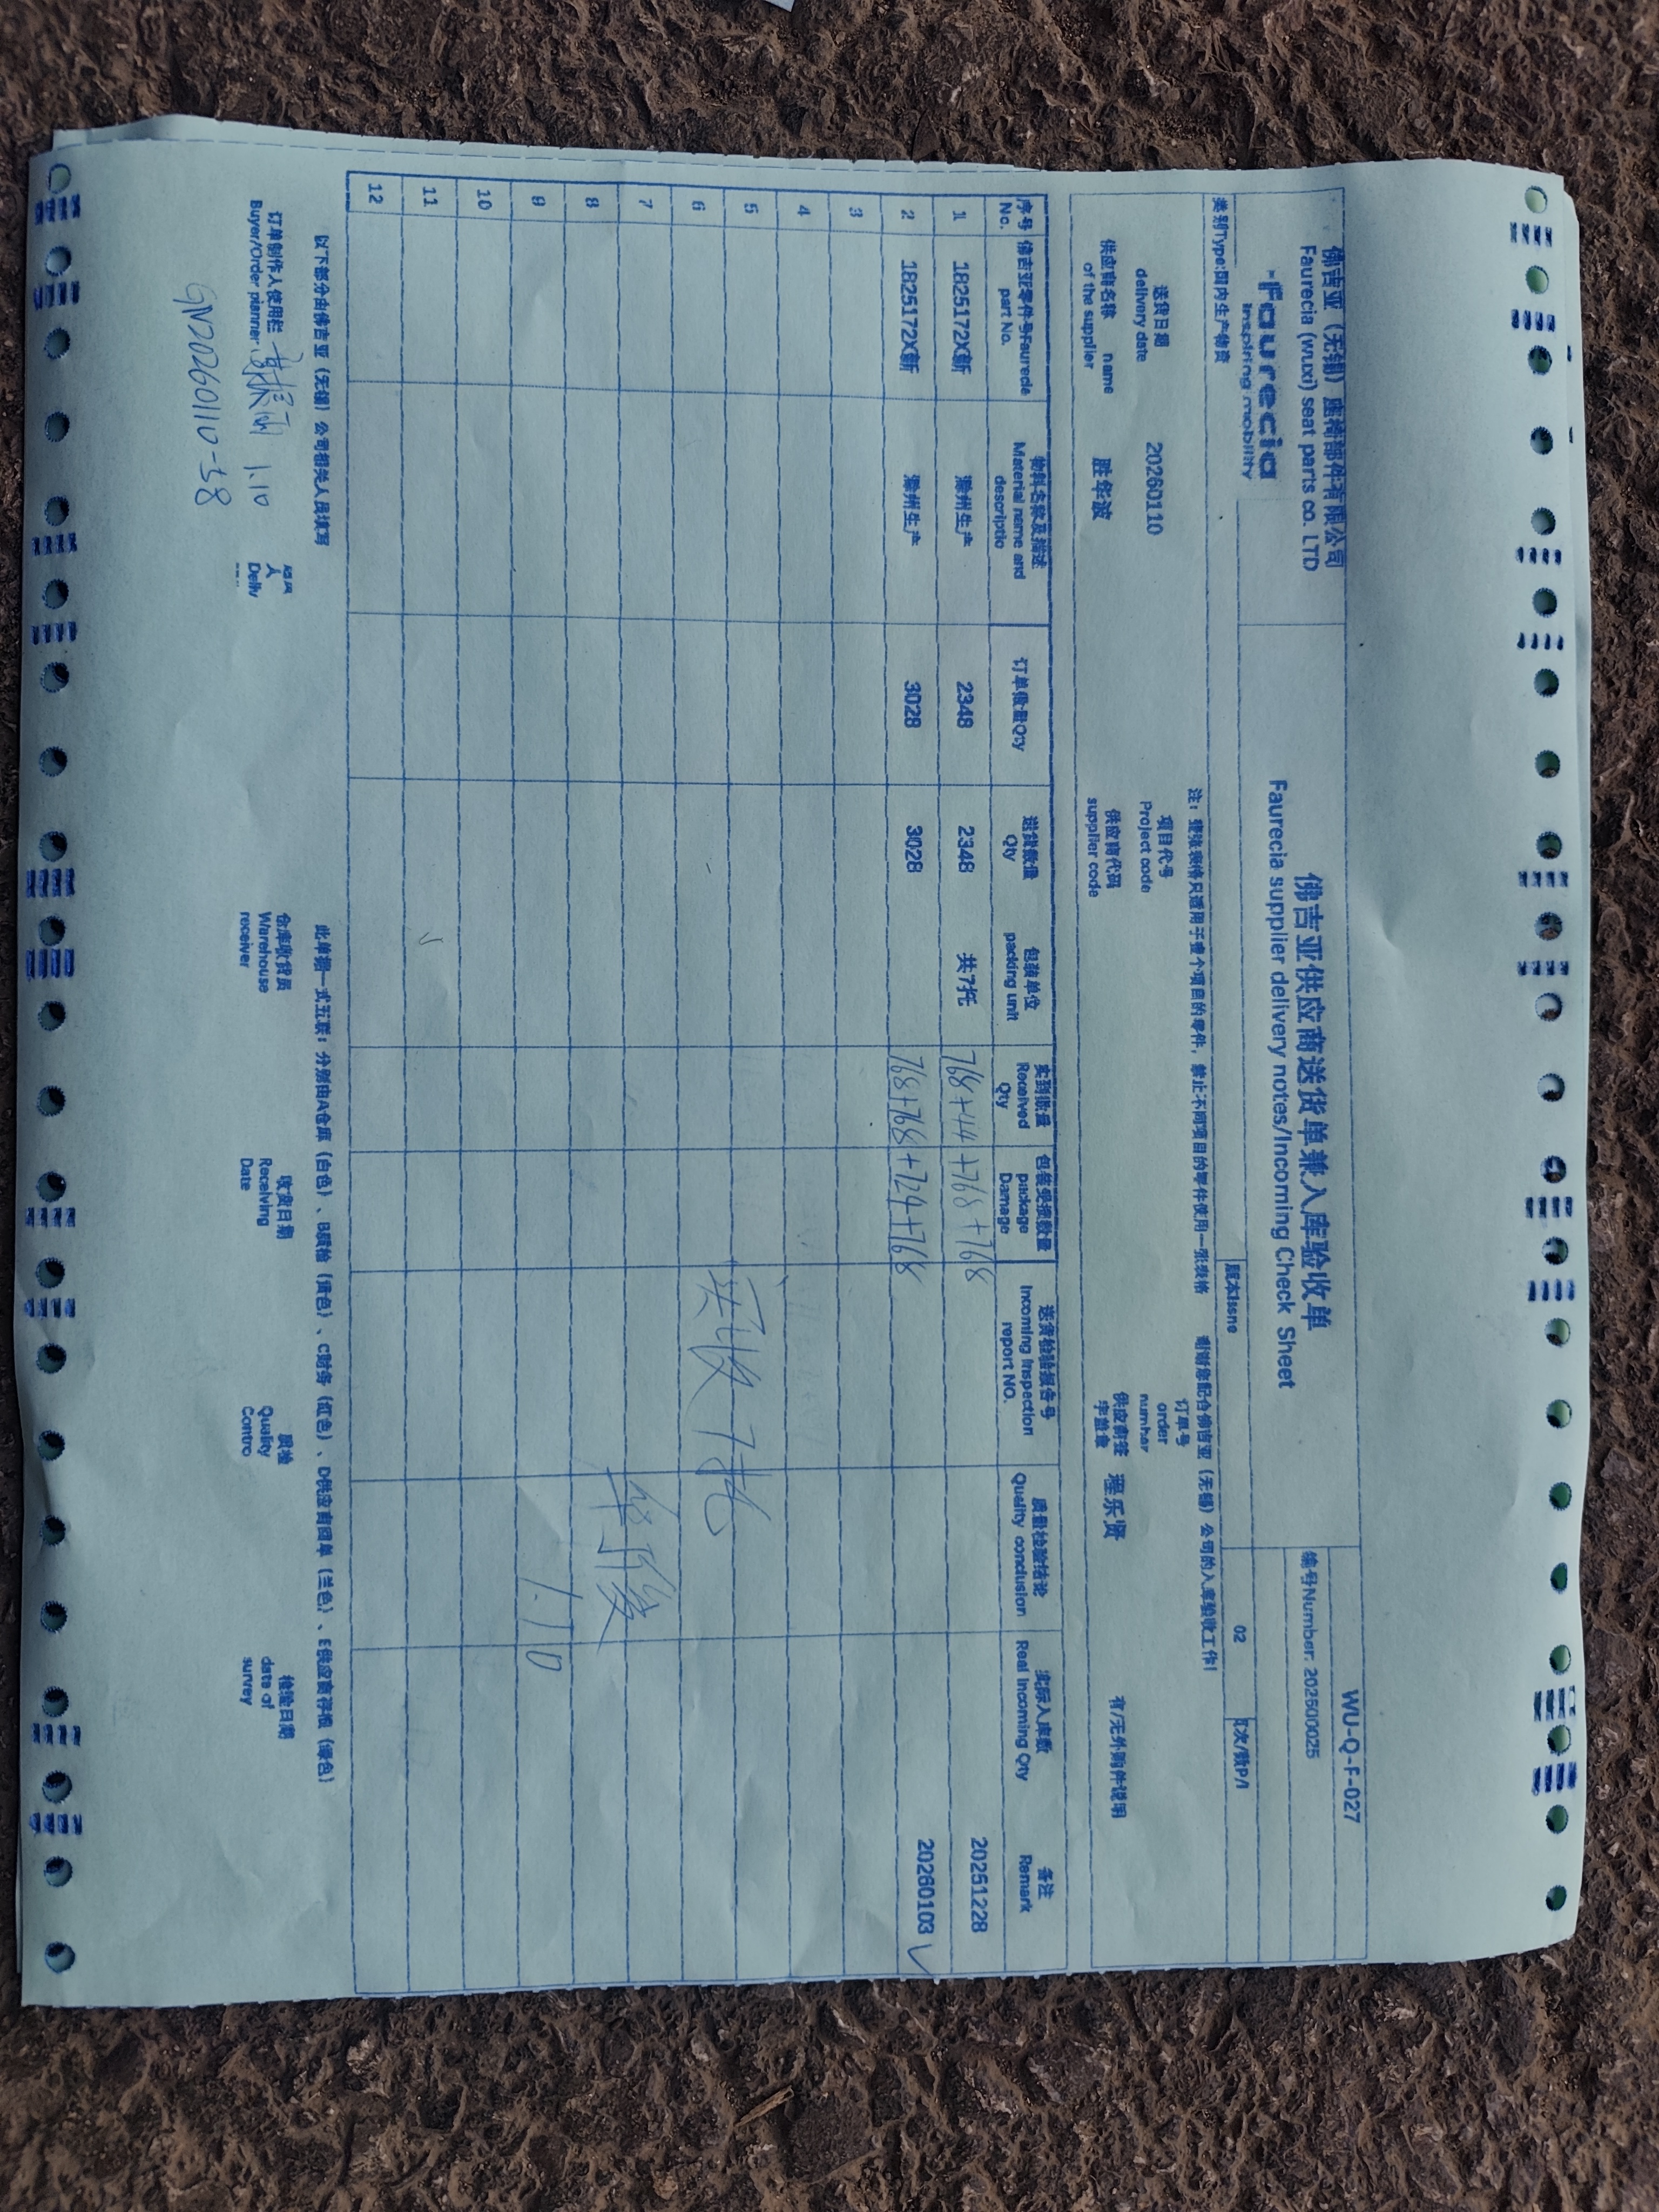 佛吉亚（无锡）座椅部件有限公司
Faurecia (wuxi) seat parts co. LTD
faurecia
inspiring mobility
佛吉亚供应商送货单兼入库验收单
Faurecia supplier delivery notes/Incoming Check Sheet
WU-Q-F-027
编号Number: 202600025
类别Type:国内生产物资
版本Issne
02
页次/数P/1
注：提张表格只适用于壹个项目的零件，禁止不同项目的零件使用一张表格
谢谢您配合佛吉亚（无锡）公司的入库验收工作!
送货日期
delivery date
20260110
项目代号
Project code
订单号
order
number
供应商名称 name
of the supplier
胜华波
供应商代码
supplier code
供应商签
字盖章
程乐贤
有/无外购件说明
序号
No.
佛吉亚零件号Faurecia
part No.
物料名称及描述
Material name and
descriptio
订单数量Qty
送货数量
Qty
包装单位
packing unit
实到数量
Received
Qty
包装受损数量
package
Damage
送货检验报告号
Incoming Inspection
report NO.
质量检验结论
Quality conclusion
实际入库数
Real Incoming Qty
备注
Remark
1 1825172X新 滁州生产 2348 2348 共7托 768+44+768+768 20251228
2 1825172X新 滁州生产 3028 3028 768+768+724+768 20260103 √
3
4
5
6
实收7托
7
8
9
1.10
10
11
12
以下部分由佛吉亚（无锡）公司相关人员填写
此单据一式五联：分别由A仓库（白色）、B质检（黄色）、C财务（红色）、D供应商回单（兰色）、E供应商存根（绿色）
订单制作人使用栏
Buyer/Order planner
1.10
人
Deliv
仓库收货员
Warehouse
receiver
收货日期
Receiving
Date
质检
Quality
Contro
检验日期
date of
survey
GN20260110-38